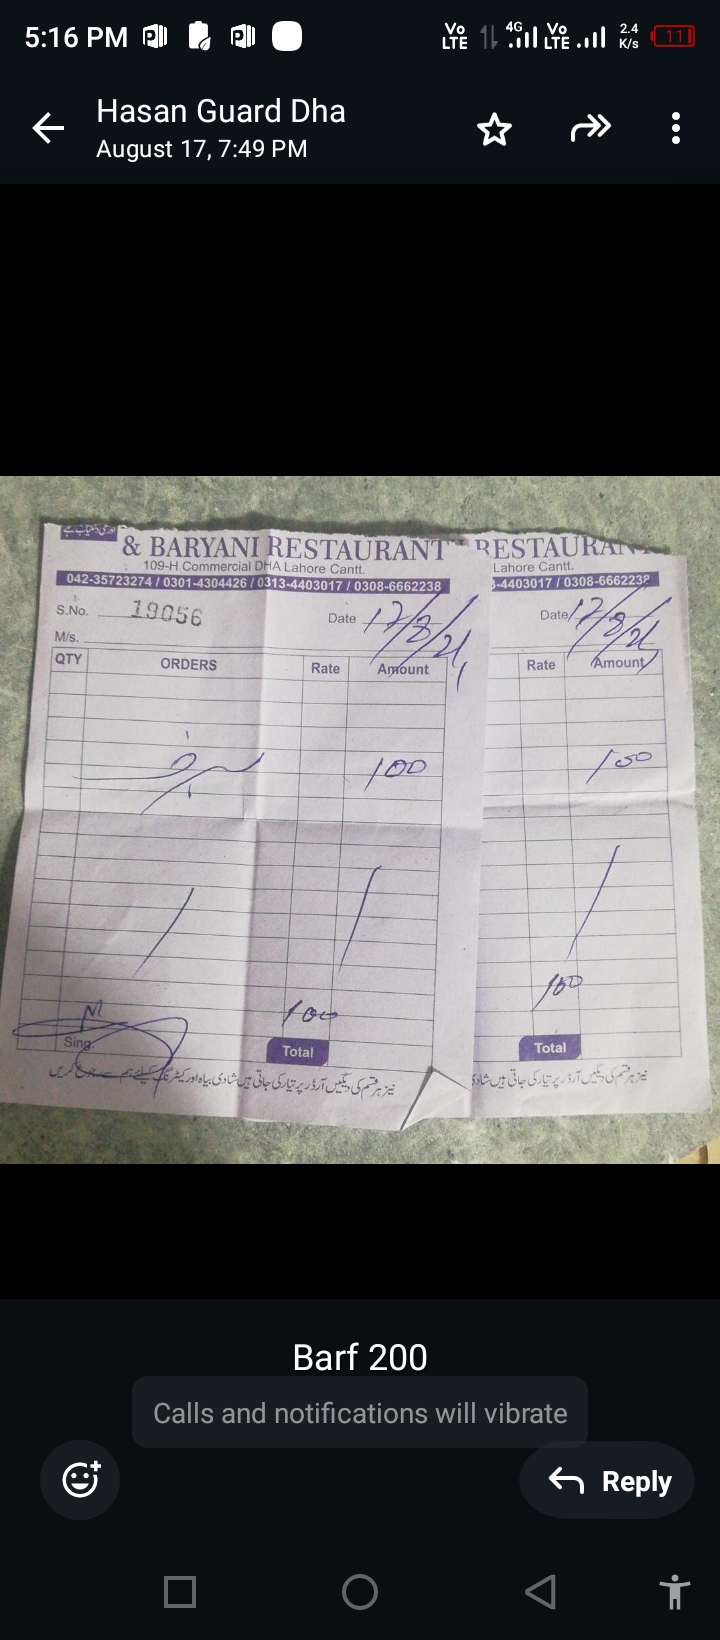 5:16 PM
Vo LTE 4G Vo LTE 2.4 K/s 11
Hasan Guard Dha
August 17, 7:49 PM
& BARYANI RESTAURANT
109-H Commercial DHA Lahore Cantt.
042-35723274 / 0301-4304426 / 0313-4403017 / 0308-6662238
S.No. 19056 Date 17/8/21
M/s.
QTY ORDERS Rate Amount
برف 100
100
Sing. Total
نیز ہر قسم کی دیگیں آرڈر پر تیار کی جاتی ہیں شادی بیاہ اور کیٹرنگ کیلئے ہم سے رجوع کریں
RESTAURANT
Lahore Cantt.
-4403017 / 0308-6662238
Date 17/8/21
Rate Amount
100
100
Total
نیز ہر قسم کی دیگیں آرڈر پر تیار کی جاتی ہیں
Barf 200
Calls and notifications will vibrate
Reply